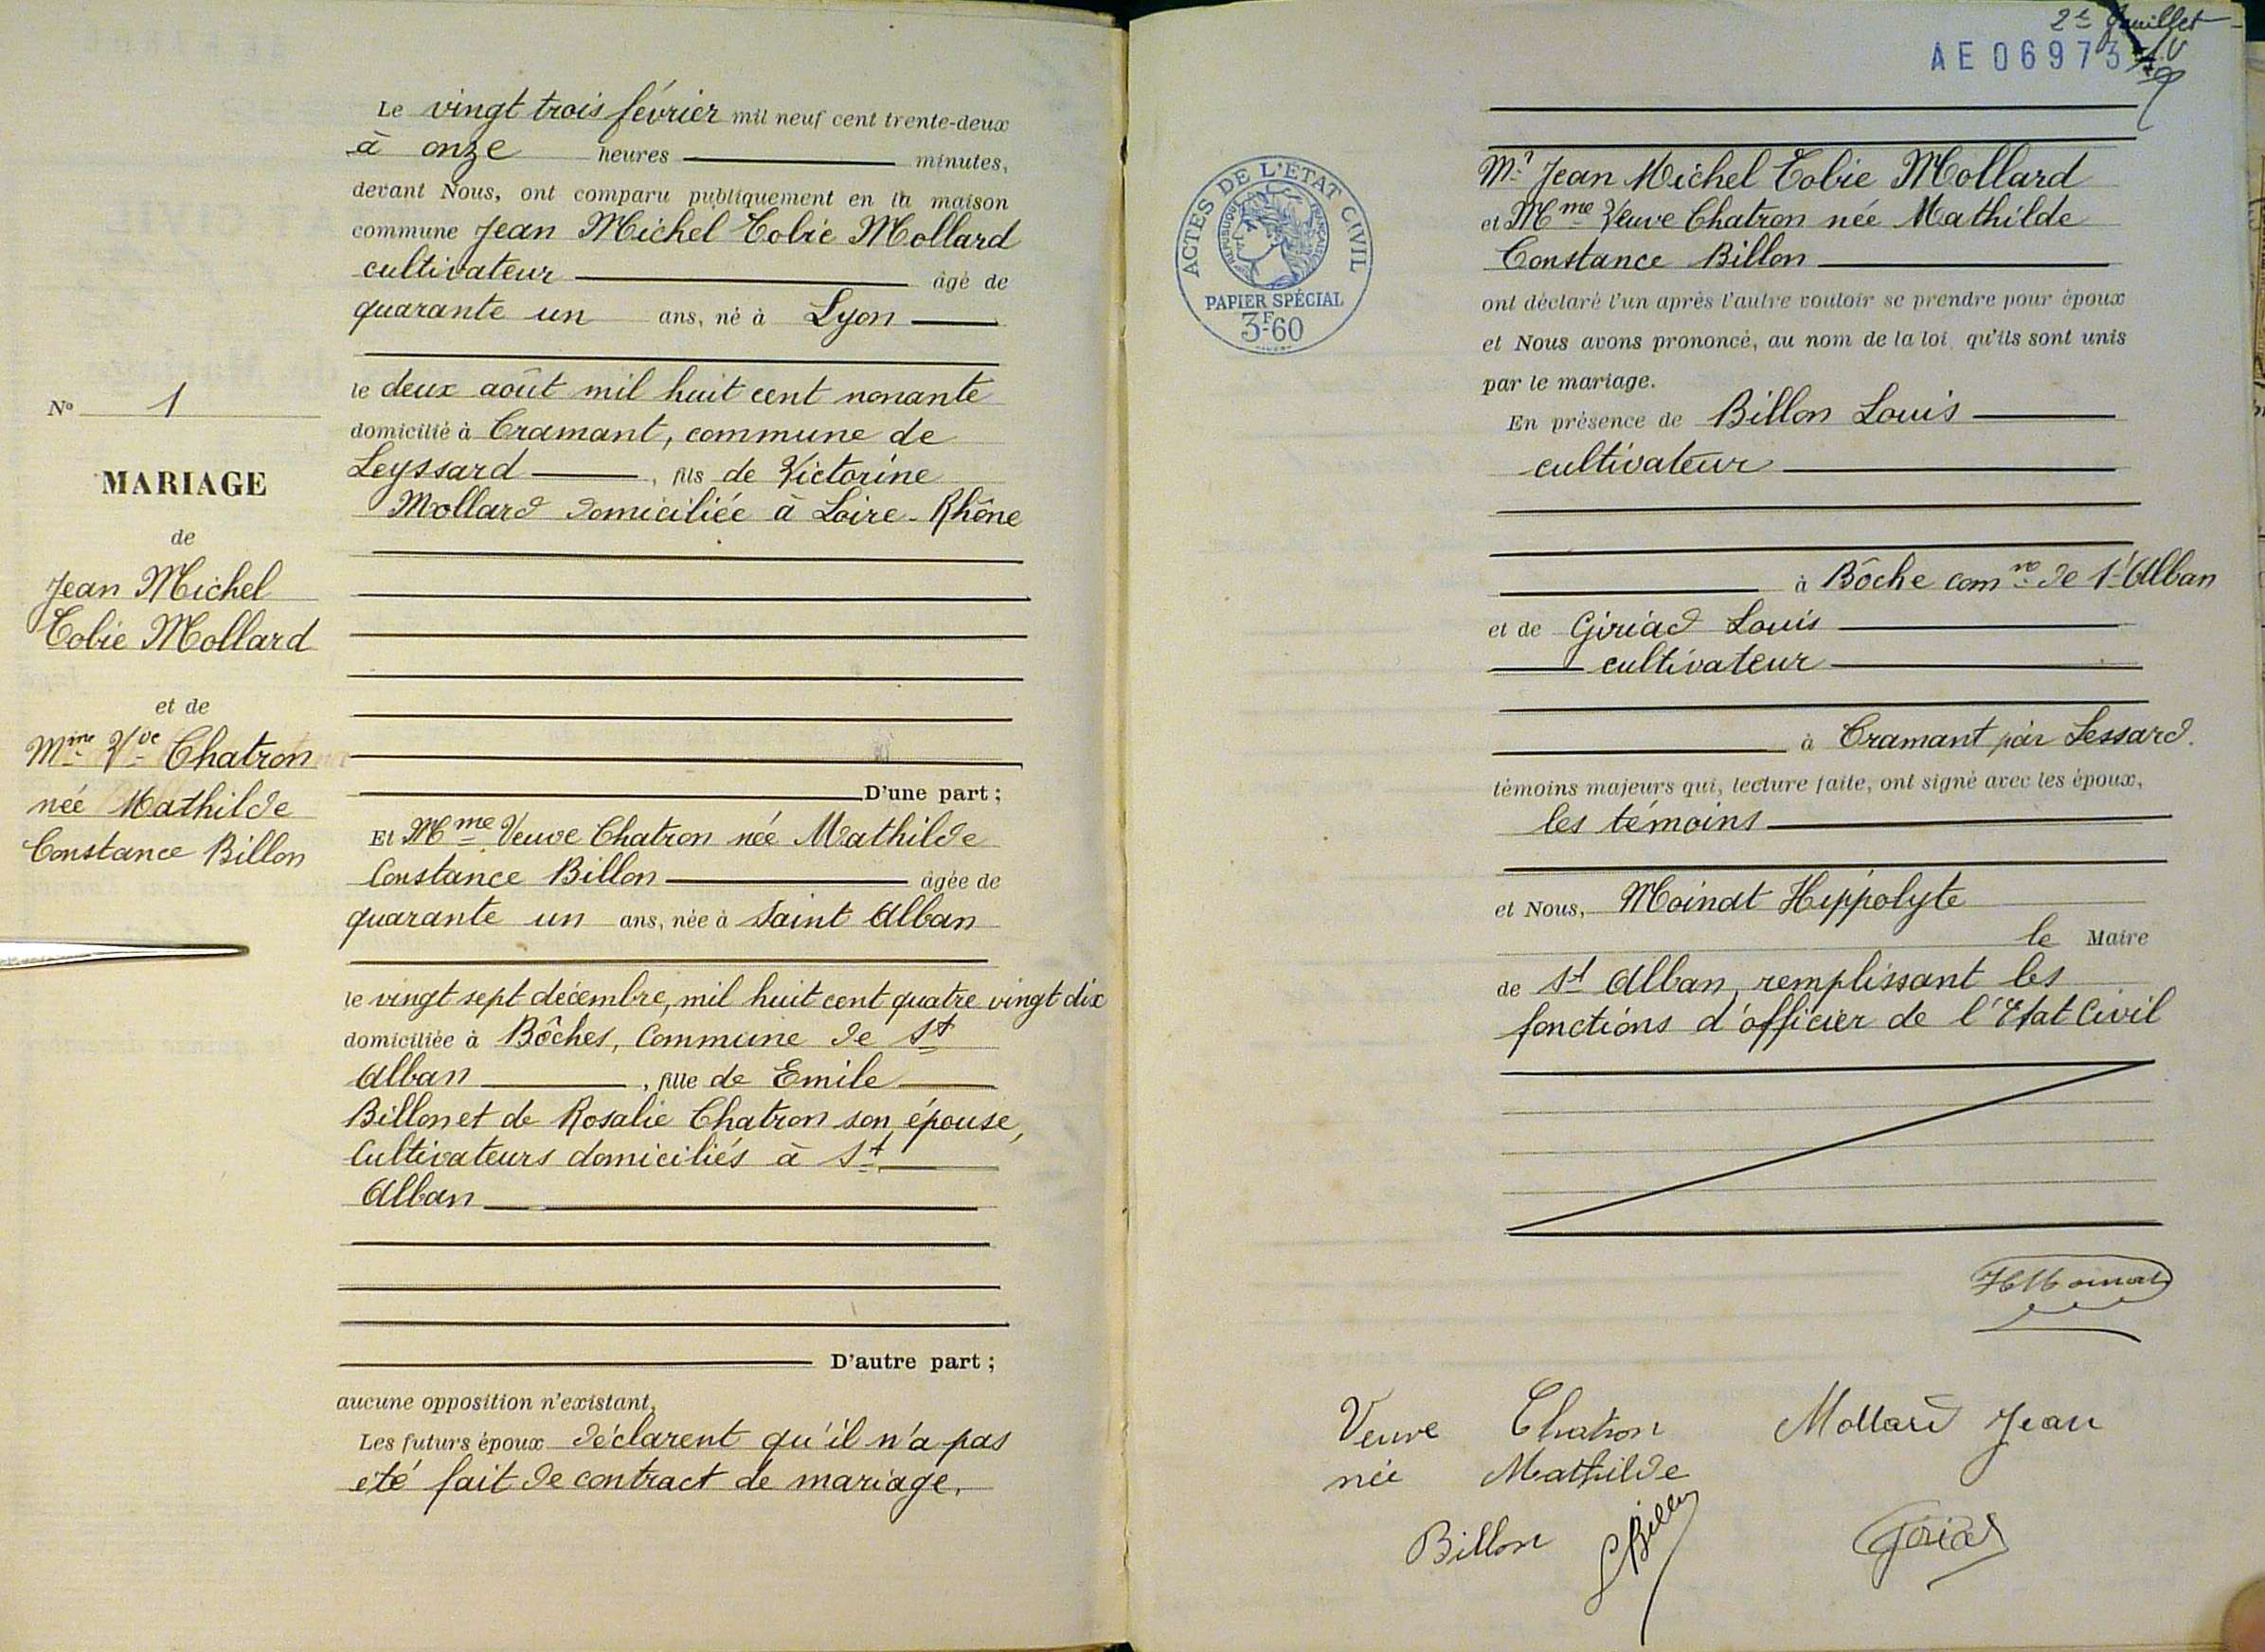 Le vingt trois février mil neuf cent trente-deux
à onze heures minutes,
devant Nous, ont comparu publiquement en la maison
commune Jean Michel Tobie Mollard
cultivateur âgé de
quarante un ans, né à Lyon
le deux août mil huit cent nonante
domicilié à Cramant, commune de
Leyssard , fils de Victorine
Mollard domiciliée à Loire-Rhône
D'une part ;
Et Mme Veuve Chatron née Mathilde
Constance Billon âgée de
quarante un ans, née à Saint Alban
le vingt sept décembre, mil huit cent quatre vingt dix
domiciliée à Bôches, Commune de St
Alban , fille de Emile
Billon et de Rosalie Chatron son épouse,
Cultivateurs domiciliés à St
Alban
D'autre part ;
aucune opposition n'existant,
Les futurs époux déclarent qu'il n'a pas
été fait de contract de mariage.
No 1
MARIAGE
de
Jean Michel
Tobie Mollard
et de
Mme Vve Chatron
née Mathilde
Constance Billon
2e feuillet
AE06973
ACTES DE L'ETAT CIVIL
REPUBLIQUE FRANÇAISE
PAPIER SPÉCIAL
3F60
Mr Jean Michel Tobie Mollard
et Mme Veuve Chatron née Mathilde
Constance Billon
ont déclaré l'un après l'autre vouloir se prendre pour époux
et Nous avons prononcé, au nom de la loi, qu'ils sont unis
par le mariage.
En présence de Billon Louis
cultivateur
à Bôche comne de St Alban
et de Giriad Louis
cultivateur
à Cramant par Lessard.
témoins majeurs qui, lecture faite, ont signé avec les époux,
les témoins
et Nous, Moindt Hippolyte
le Maire
de St Alban, remplissant les
fonctions d'officier de l'Etat Civil
Veuve Chatron Mollard Jean
née Mathilde
Billon L Billon Giriad